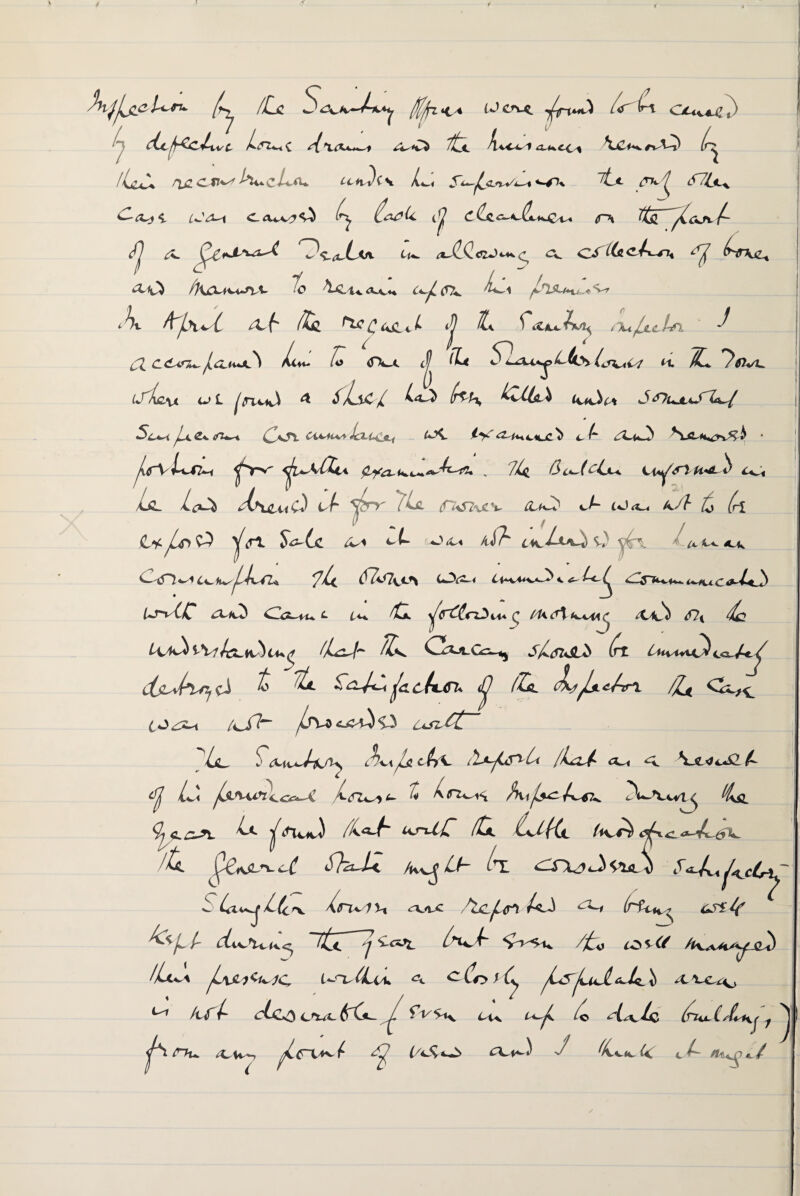 Inspection by the Sanitary Officers were found to be caused
by defective house drains and the nuisances removed by
them reconstruction under his supervision. The only other
Case was caused by lack of cleanliness on the part
of a General Dealer in allowing a collection of bones
and manure to remain upon his premises.
In April at the request of the Sanitary Inspector I
accompanied him to one of the Slaughterhouses in the Town
where we found a Sheep had been killed under somewhat
Suspicious Circumstances, we examined it and removed
portions for further examination. The Butcher informed us
he had dressed it for the owner and it was not to be
exposed for Sale as it was not intended for human
Consumption. The owner was immediately communicated
with and came in the following morning and on the
understanding that the Carcass should be immediately
destroyed to the Satisfaction of the Inspector the Case
was not proceeded with.
The Sanitary Inspector reports that as a result
of his periodical house to house Inspection during the
year he found that with the little modification
the general State might be considered Satisfactory
Slaughter houses are reported as being well
kept during the year but even the well managed
them presence within a closely populated area
is not desirable, even in up to date buildings,
from any point of view and I think it might